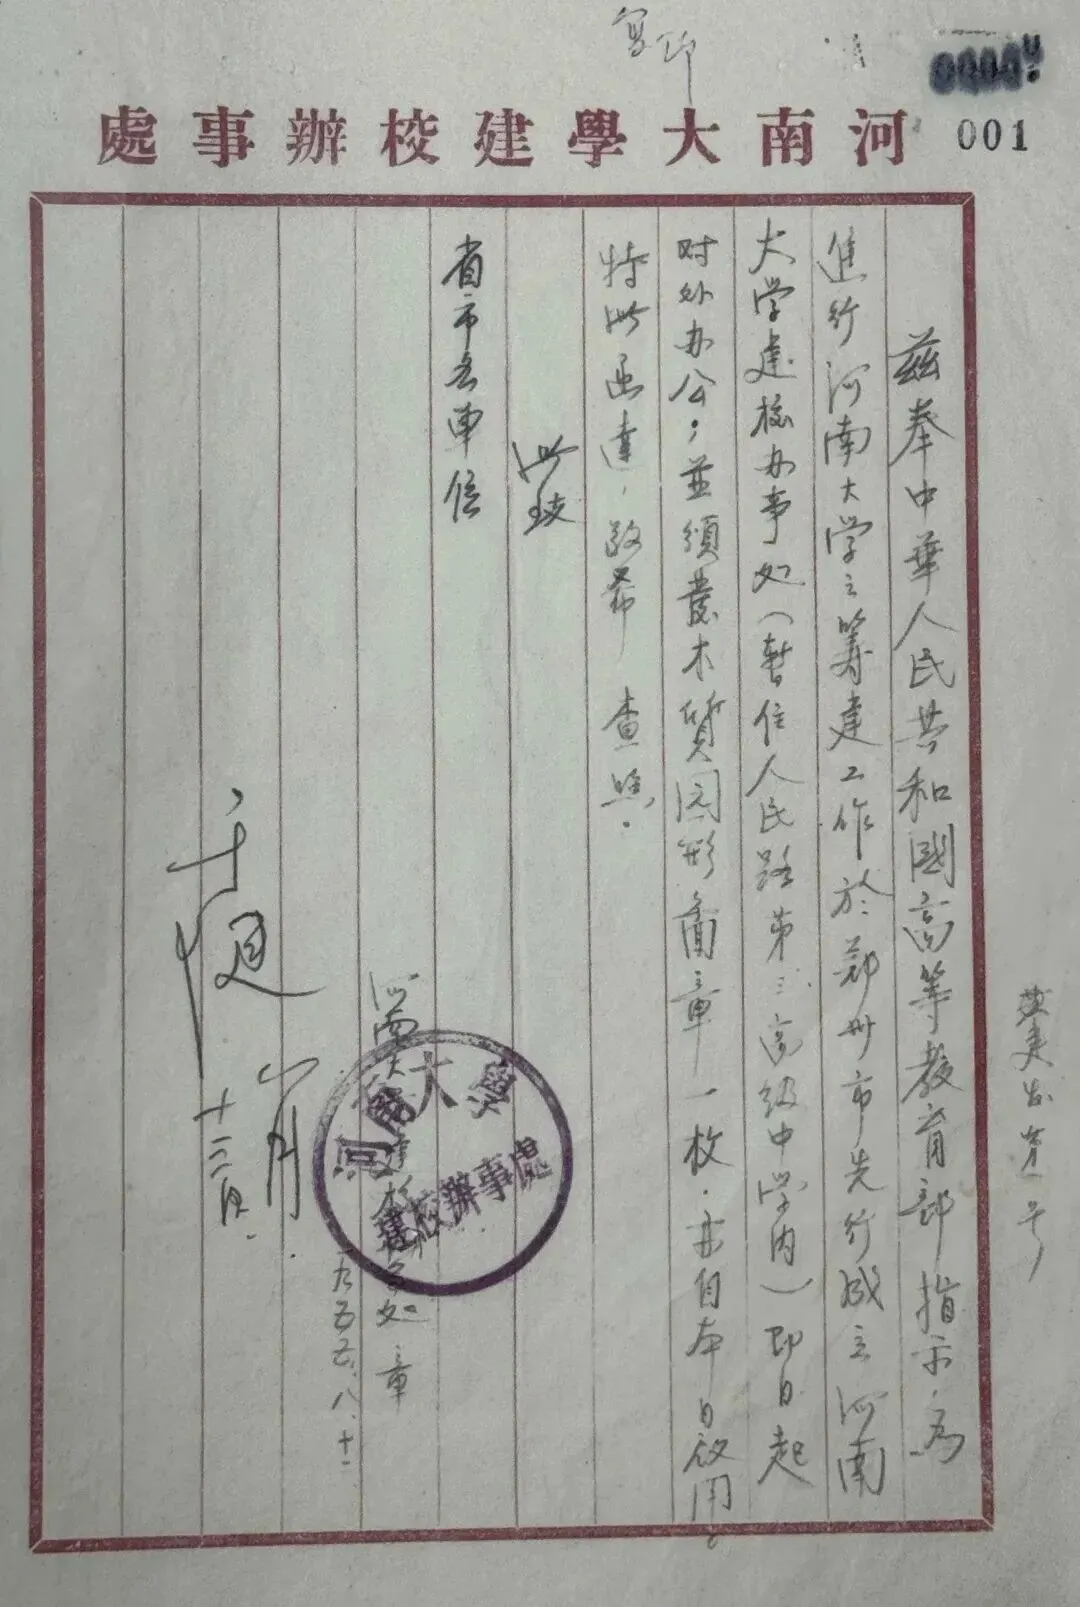 复印
河南大學建校辦事處
001
建出字第一号
兹奉中華人民共和國高等教育部指示，为
進行河南大学之筹建工作於郑州市先行成立河南
大学建校办事处（暂住人民路第三高级中学内）即日起
对外办公；並頒發木質园形
章一枚．亦自本日啟用。
特此函達，敬希 查照．
此致
省市各單位
河南大学建校办事处章
河南大學
建校辦事處
一九五五、八、十
八月
十二日